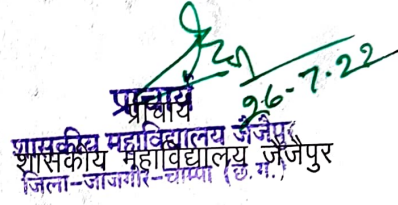 26-7-22
प्राचार्य
प्राचार्य
शासकीय महाविद्यालय जैजैपुर
शासकीय महाविद्यालय जैजैपुर
जिला-जाजगीर-चाम्पा (छ.ग.)